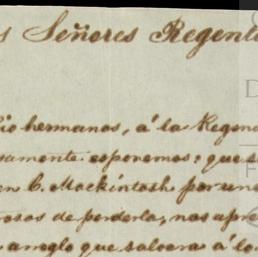 s Señores Regent
io hermanos, á la Regen
samente esponemos; que s
en C. Mackintosh por un
rosos de perderla, nos apre
arreglo que salvara á lo